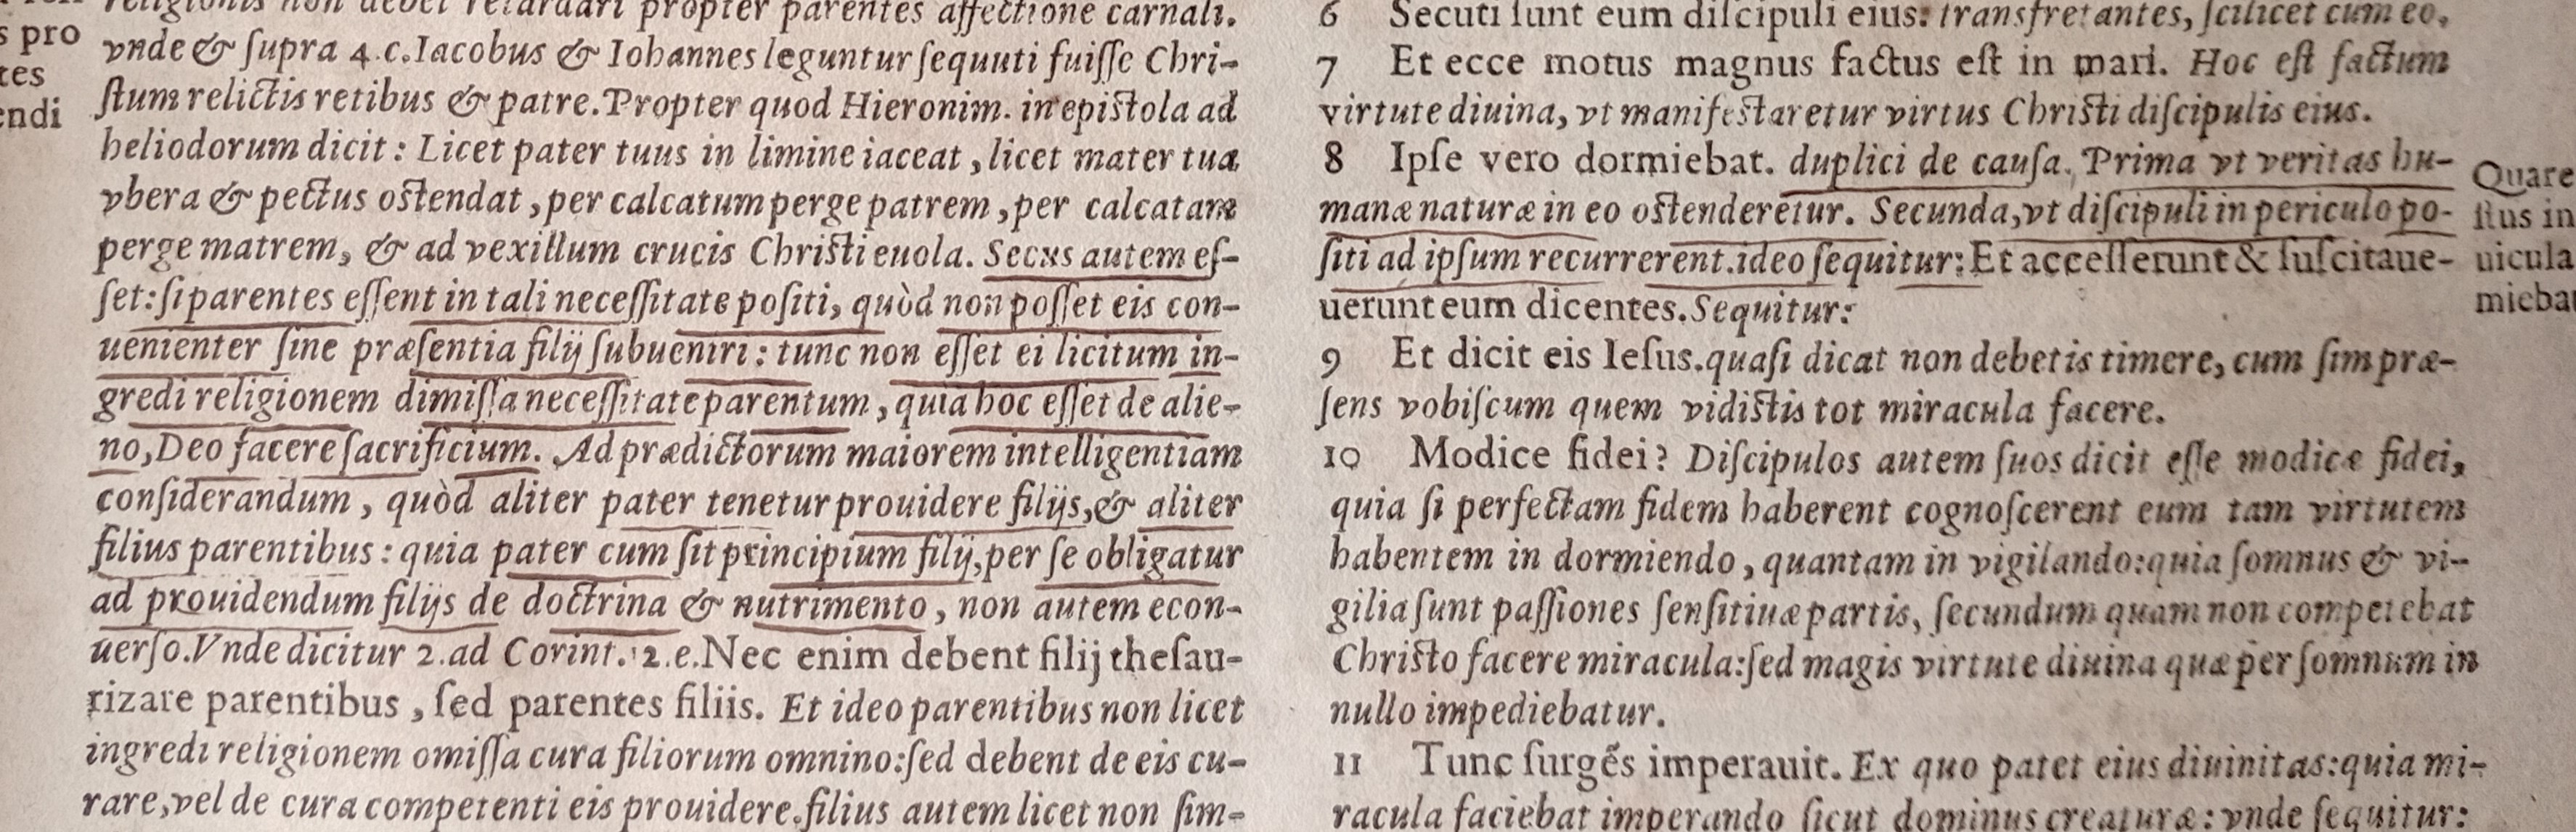 religionis non debet retardari propter parentes affectione carnali.
vnde & ſupra 4.c.Iacobus & Iohannes leguntur ſequuti fuiſſe Chri-
ſtum relictis retibus & patre.Propter quod Hieronim. in epiſtola ad
heliodorum dicit: Licet pater tuus in limine iaceat, licet mater tua
vbera & pectus oſtendat, per calcatum perge patrem, per calcatam
perge matrem, & ad vexillum crucis Chriſti euola. Secus autem eſ-
ſet:ſi parentes eſſent in tali neceſſitate poſiti, quòd non poſſet eis con-
uenienter ſine præſentia filij ſubueniri: tunc non eſſet ei licitum in-
gredi religionem dimiſſa neceſſitate parentum, quia hoc eſſet de alie-
no,Deo facere ſacrificium. Ad prædictorum maiorem intelligentiam
conſiderandum, quòd aliter pater tenetur prouidere filijs,& aliter
filius parentibus: quia pater cum ſit principium filij,per ſe obligatur
ad prouidendum filijs de doctrina & nutrimento, non autem econ-
uerſo.Vnde dicitur 2.ad Corint. 12.e.Nec enim debent filij theſau-
rizare parentibus, ſed parentes filiis. Et ideo parentibus non licet
ingredi religionem omiſſa cura filiorum omnino:ſed debent de eis cu-
rare,vel de cura competenti eis prouidere.filius autem licet non ſim-
s pro
tes
endi
6 Secuti ſunt eum diſcipuli eius: transfretantes, ſcilicet cum eo.
7 Et ecce motus magnus factus eſt in mari. Hoc eſt factum
virtute diuina, vt manifeſtaretur virtus Chriſti diſcipulis eius.
8 Ipſe vero dormiebat. duplici de cauſa. Prima vt veritas hu-
manæ naturæ in eo oſtenderetur. Secunda,vt diſcipuli in periculo po-
ſiti ad ipſum recurrerent.ideo ſequitur: Et acceſſerunt & ſuſcitaue-
uerunt eum dicentes.Sequitur:
9 Et dicit eis Ieſus.quaſi dicat non debetis timere, cum ſim præ-
ſens vobiſcum quem vidiſtis tot miracula facere.
10 Modice fidei? Diſcipulos autem ſuos dicit eſſe modicæ fidei,
quia ſi perfectam fidem haberent cognoſcerent eum tam virtutem
habentem in dormiendo, quantam in vigilando:quia ſomnus & vi-
gilia ſunt paſſiones ſenſitiuæ partis, ſecundum quam non competebat
Chriſto facere miracula:ſed magis virtute diuina quæ per ſomnum in
nullo impediebatur.
11 Tunc ſurgẽs imperauit. Ex quo patet eius diuinitas:quia mi-
racula faciebat imperando ſicut dominus creaturæ: vnde ſequitur:
Quare
ſtus in
uicula
mieba